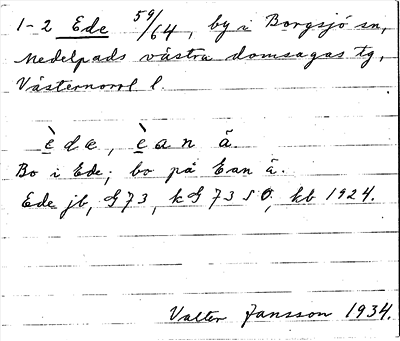 1-2 Ede 59/64, by i Borgsjö sn,
Medelpads västra domsagas tg,
Västernorrl l.
è̱dæ, è̱an ä.
Bo i Ede; bo på Ean ä.
Ede jb, G73, kG 73 SO, kb 1924.
Valter Jansson 1934.